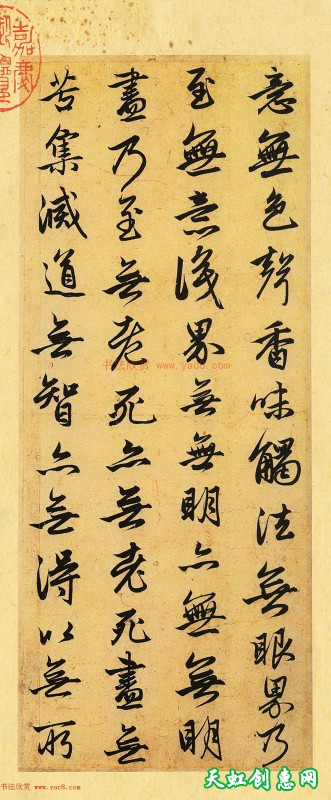 意無色聲香味觸法無眼界乃
至無意識界無無明亦無無明
盡乃至無老死亦無老死盡無
苦集滅道無智亦無得以無所
嘉慶
书法欣赏 www.yac8.com
书法欣赏 www.yac8.com
天虹创惠网